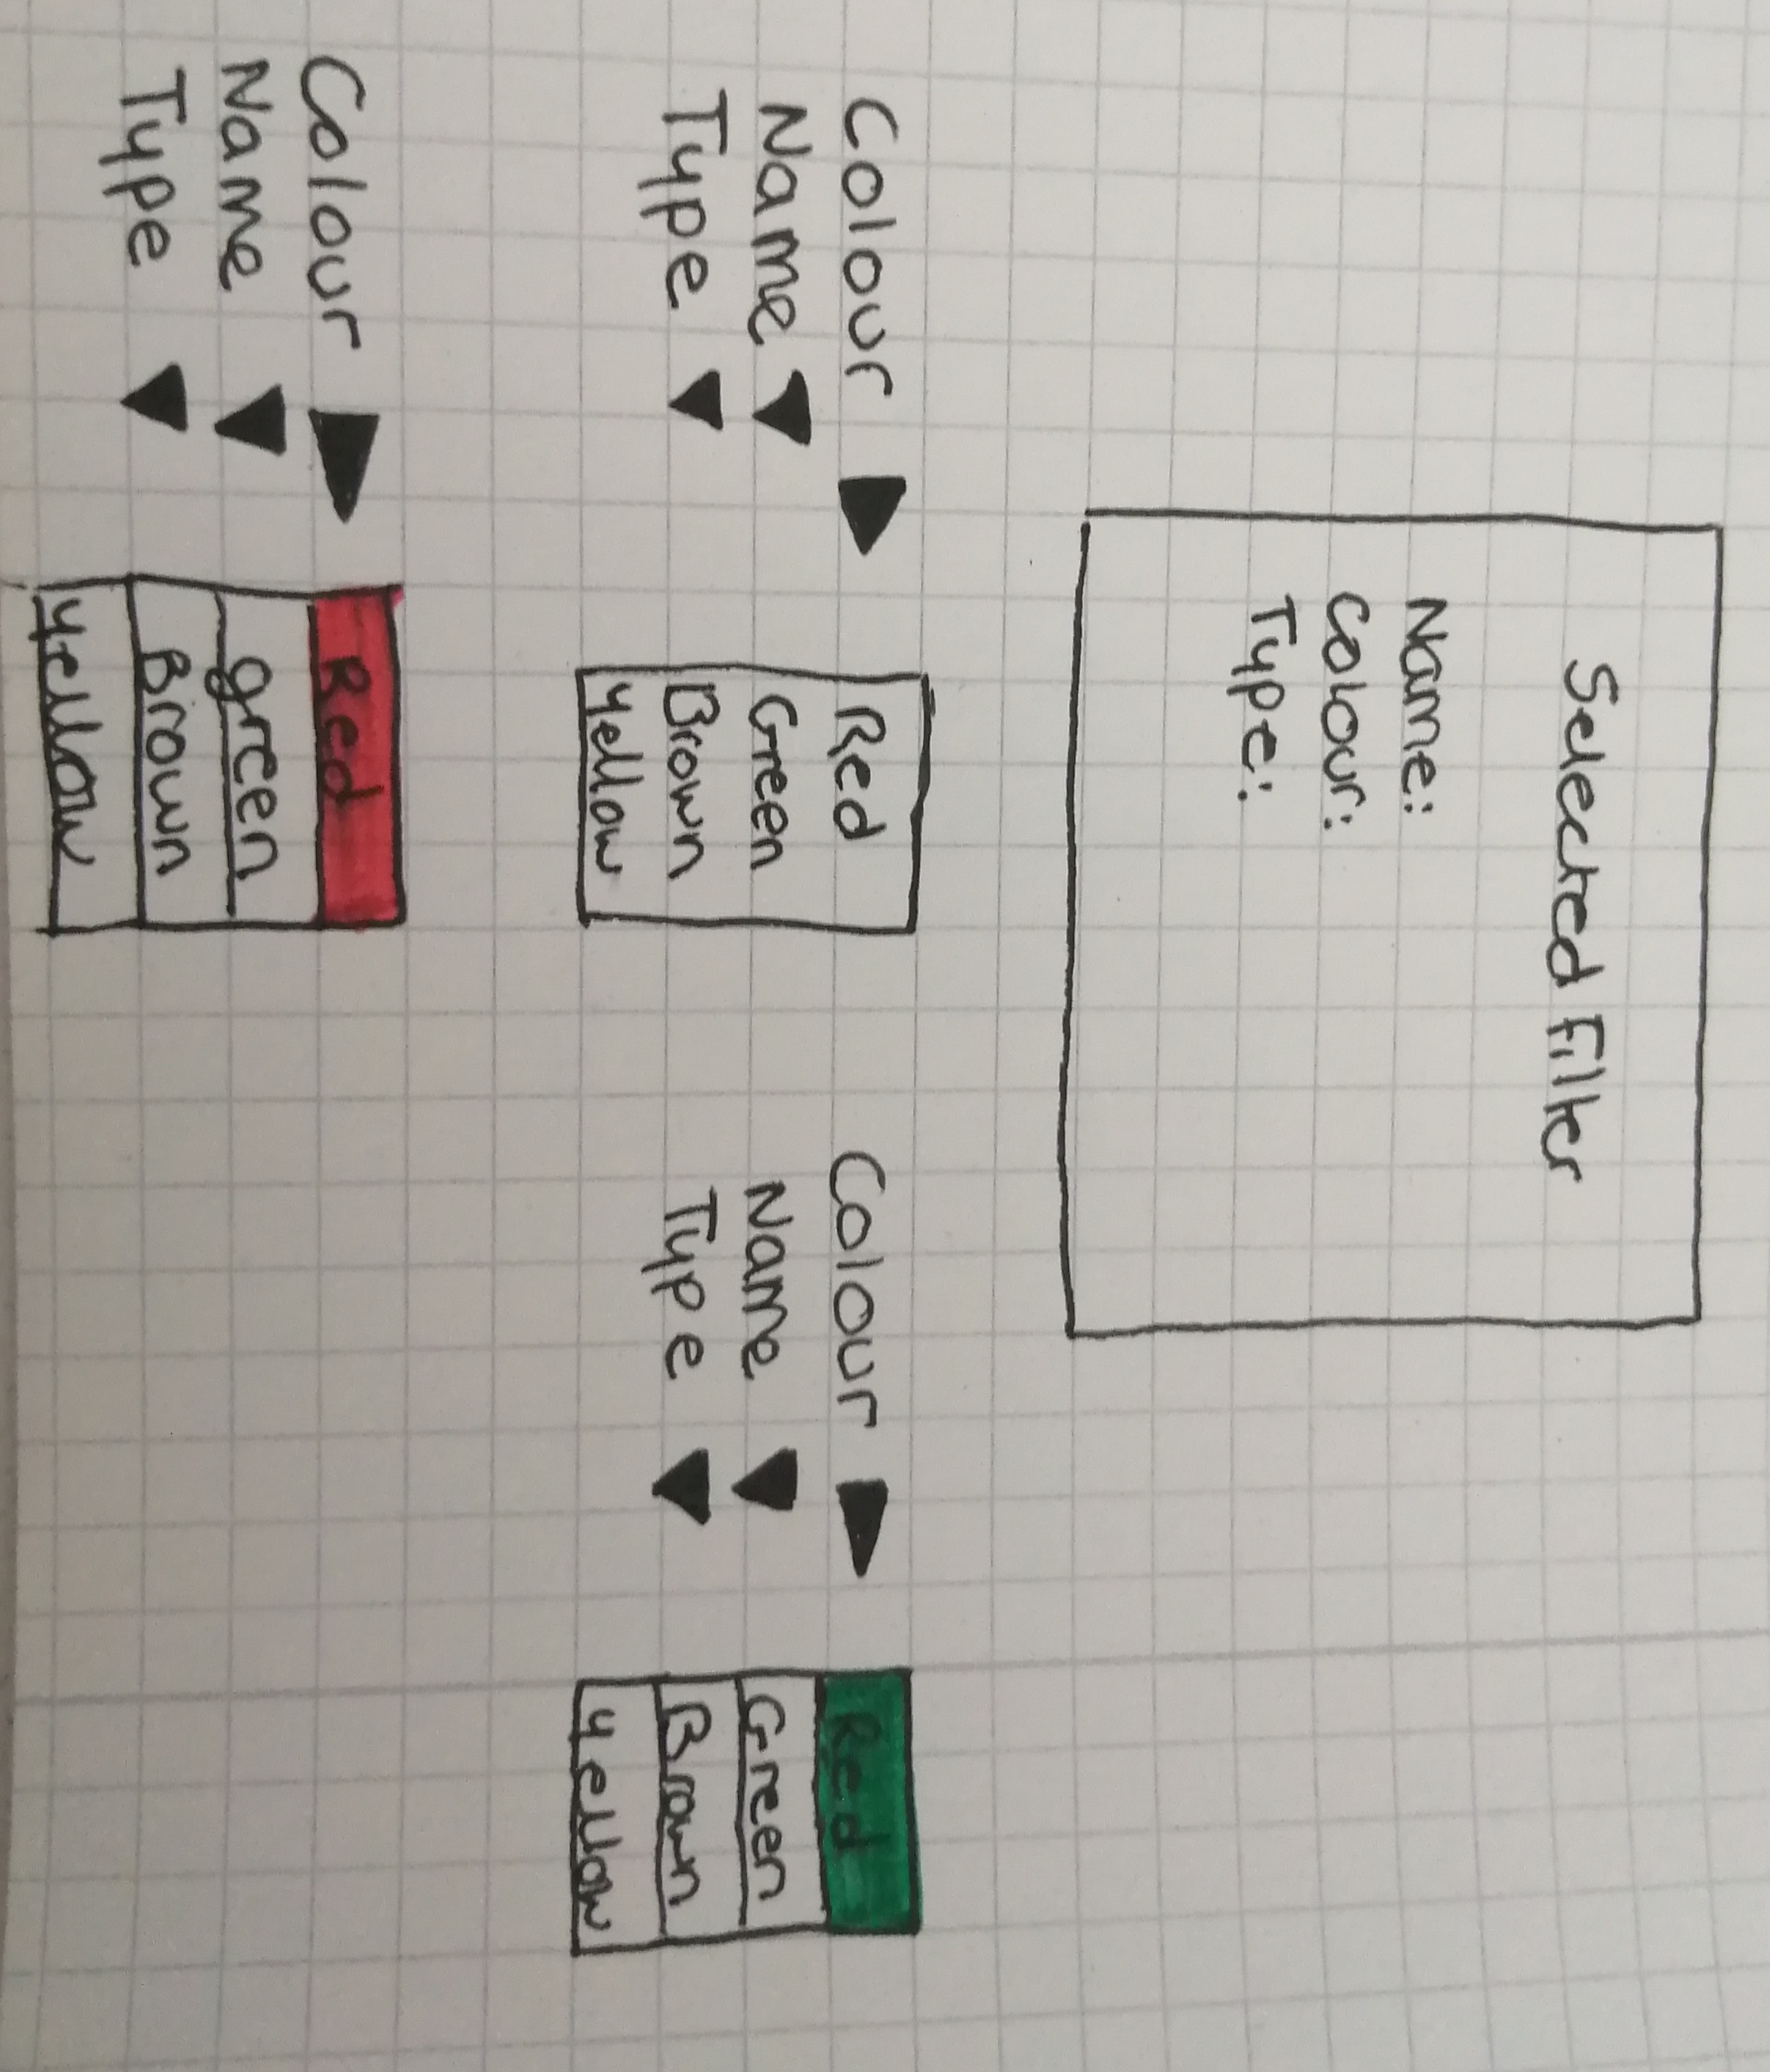 Selected Filter
Name:
Colour:
Type:
Colour
Name
Type
Red
Green
Brown
Yellow
Colour
Name
Type
Red
Green
Brown
Yellow
Colour
Name
Type
Red
green
Brown
Yellow